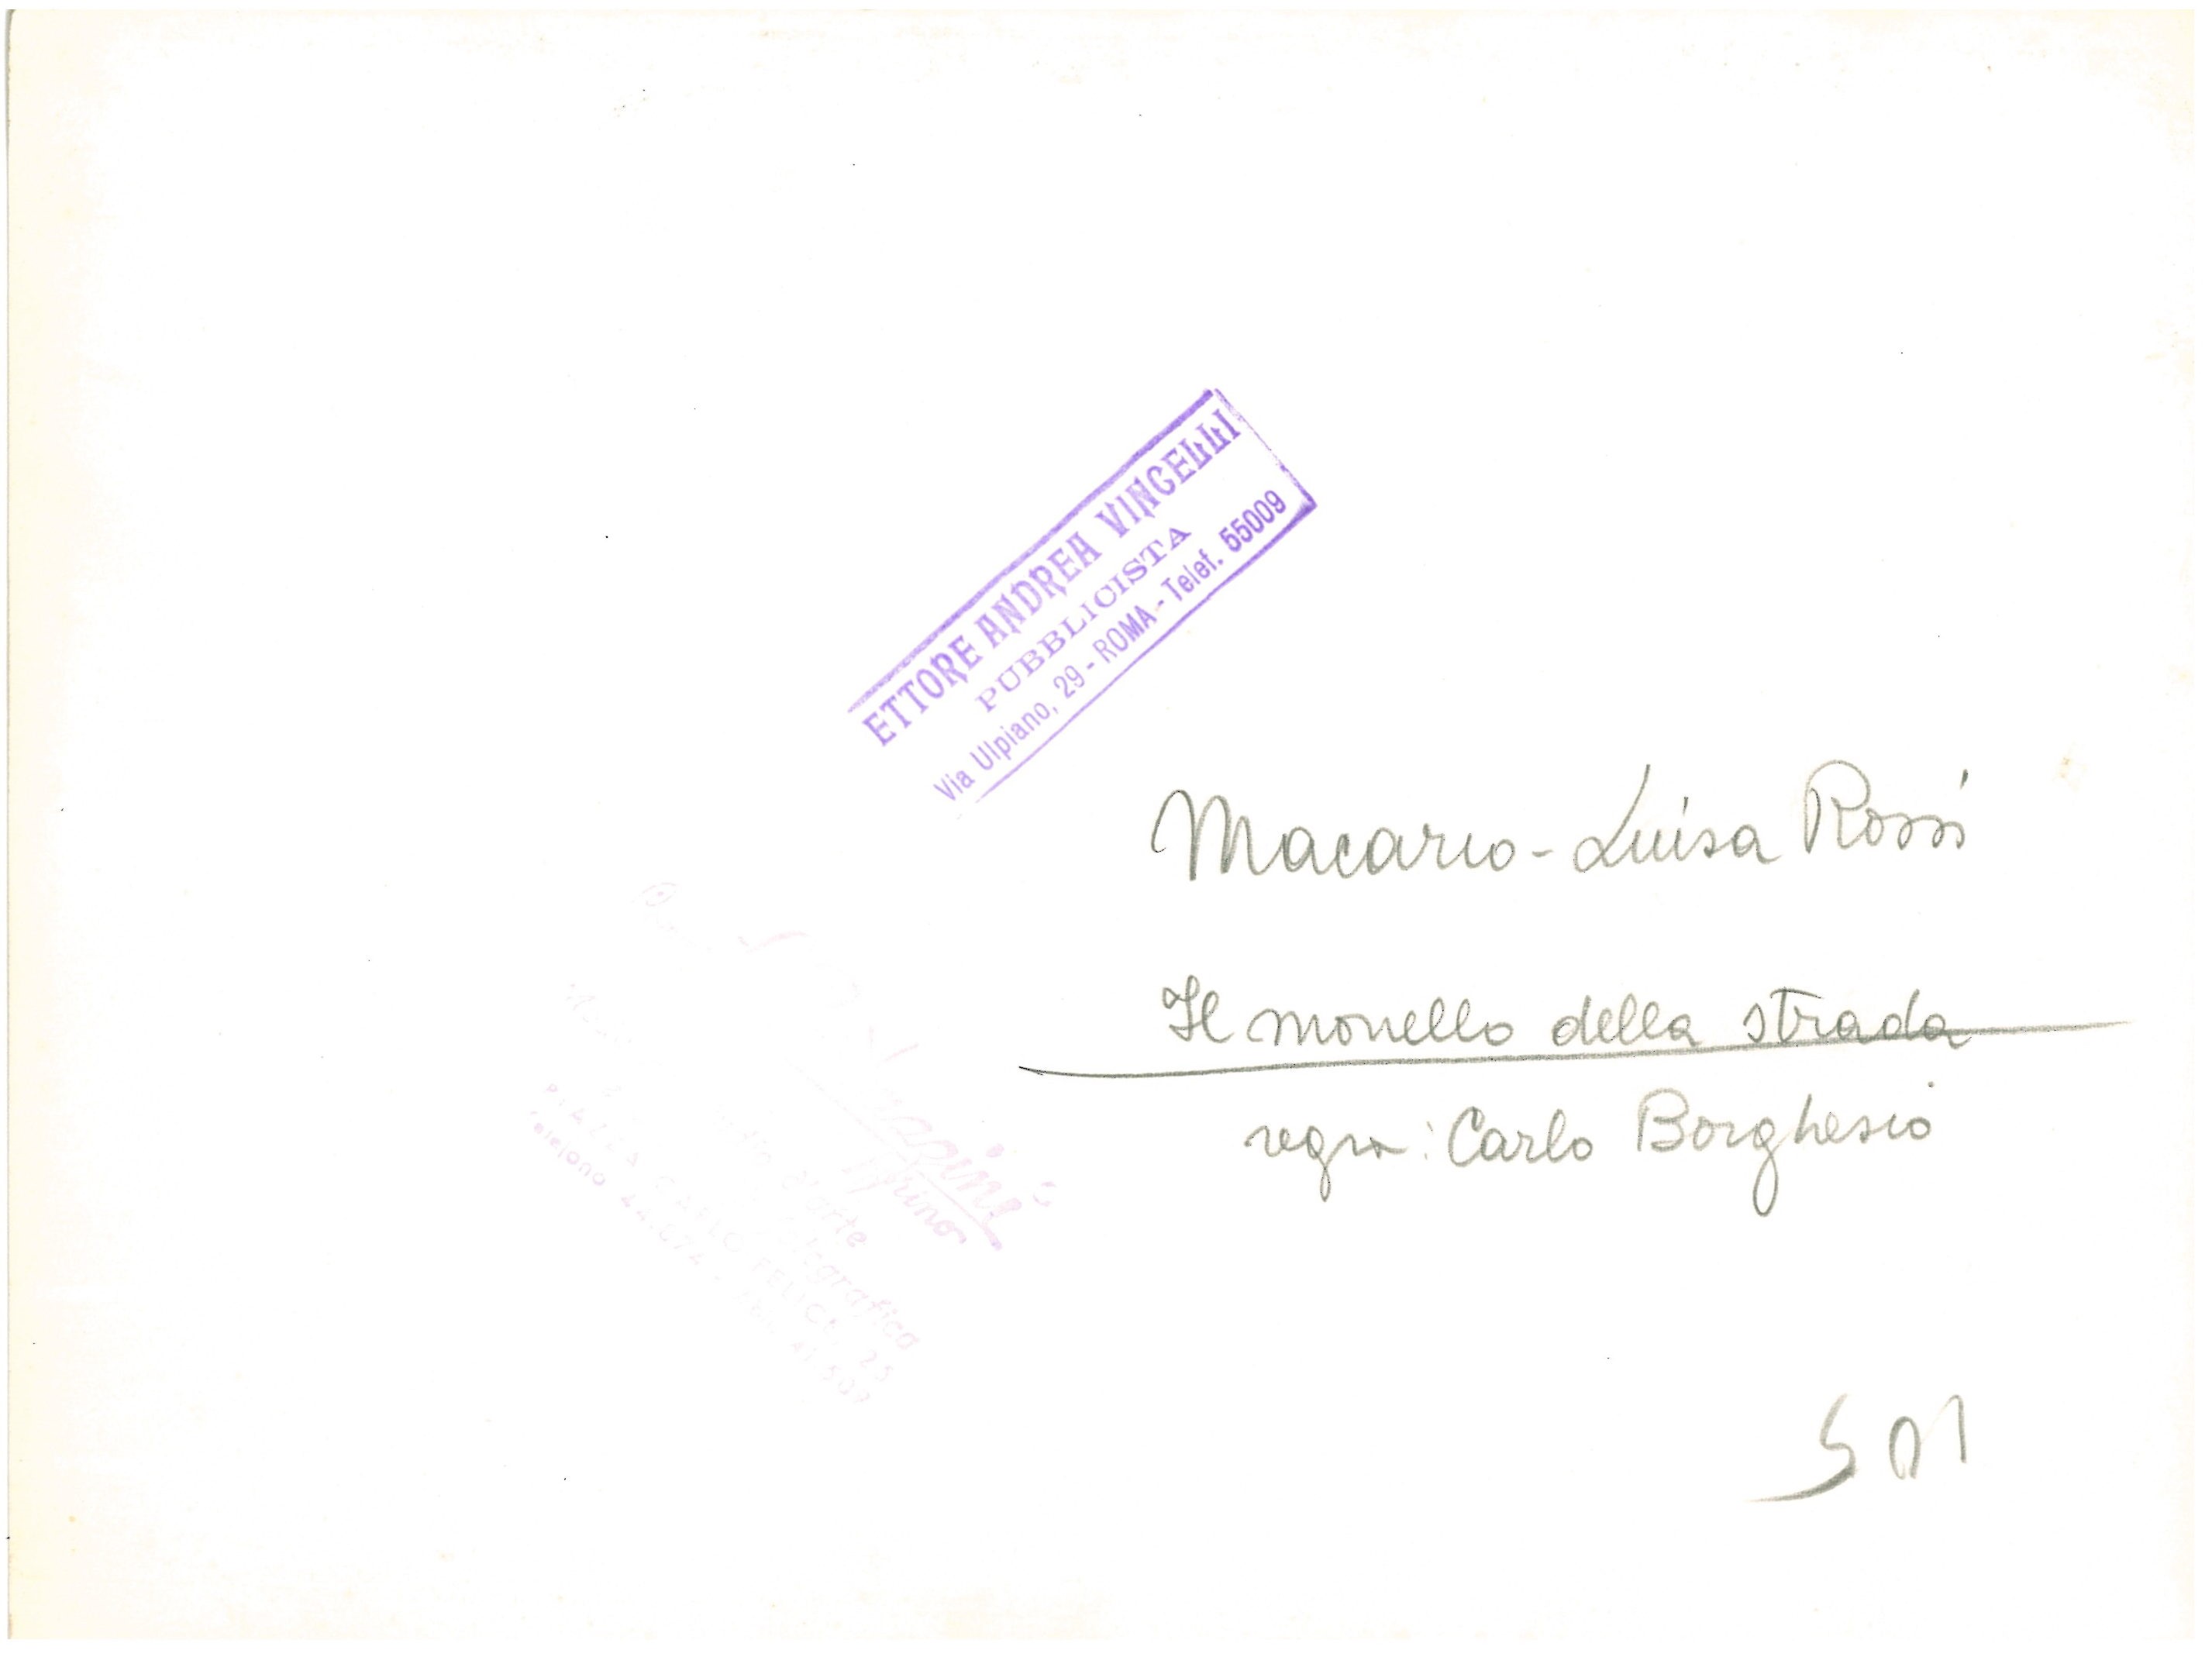 ETTORE ANDREA VINCELLI
PUBBLICISTA
Via Ulpiano, 29 - ROMA - Telef. 55009
Macario - Luisa Rossi
Il monello della strada
regia: Carlo Borghesio
501
d'arte
PIAZZA CARLO FELICE, 25
Telefono 44.674